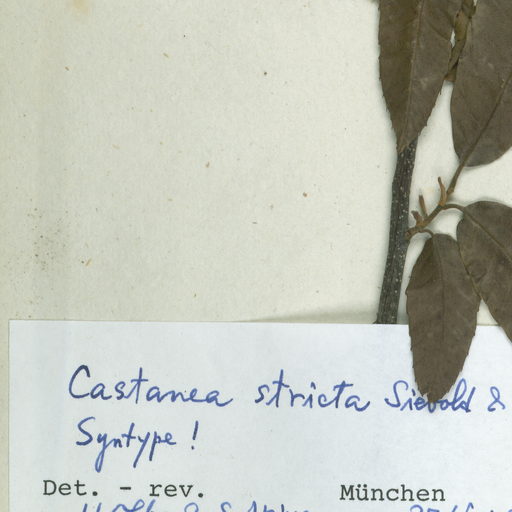 Castanea stricta Siebold &
Syntype!
Det. - rev. München